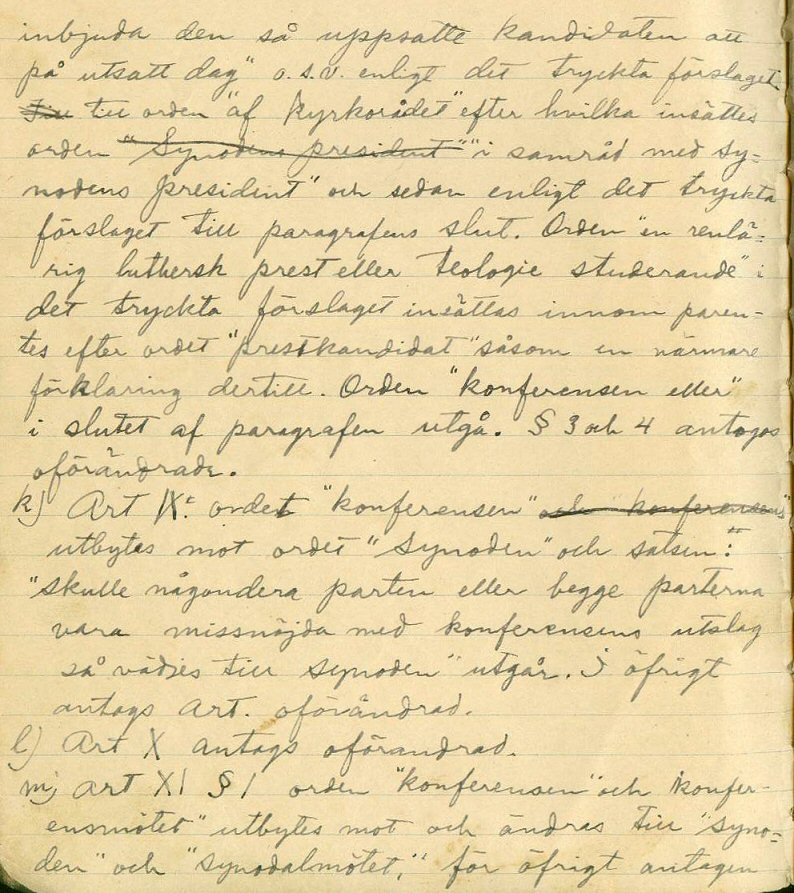 inbjuda den så uppsatte kandidaten att
på utsatt dag" o.s.v. enligt det tryckta förslaget
till till orden "af kyrkorådet" efter hvilka insättes
orden "Synodens president" "i samråd med Sy=
nodens president" och sedan enligt det tryckta
förslaget till paragrafens slut. Orden "en renlä=
rig luthersk prest eller teologie studerande" i
det tryckta förslaget insättas innom paren-
tes efter ordet "prestkandidat" såsom en närmare
förklaring dertill. Orden "konferensen eller"
i slutet af paragrafen utgå. § 3 och 4 antogos
oförändrade.
k) Art IX: ordet "konferensen" och "konferensens"
utbytes mot ordet "Synoden" och satsen:"
"skulle någondera parten eller begge parterna
vara missnöjda med konferensens utslag
så vädjes till Synoden" utgår. I öfrigt
antogs Art. oförändrad.
l) Art X antogs oförändrad.
m) Art XI § 1 orden "konferensen" och konfer-
ensmötet" utbytes mot och ändras till "Syno=
den" och "synodalmötet," för öfrigt antagen